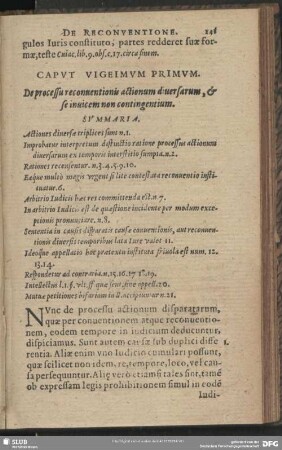 DE RECONVENTIONE. 141
gulos Iuris constituto, partes redderet suæ for-
mæ, teste Cuiac. lib. 9. obs. c. 17. circa finem.
CAPVT VIGEIMVM PRIMVM.
De processu reconuentionis actionum diuersarum, &
se inuicem non contingentium.
SVMMARIA.
Actiones diuersæ triplices sunt n. 1.
Improbatur interpretum distinctio ratione processus actionum
diuersarum ex temporis interstitio sumpta. n. 2.
Rationes recensentur. n. 3. 4. 5. 9. 10.
Eæque multo magis vrgent si lite contestata reconuentio insti-
tuatur. 6.
Arbitrio Iudicis hæc res committenda est. n. 7.
In arbitrio Iudicis est de quæstione incidente per modum exce-
ptionis pronunciare. n. 8.
Sententia in causis disparatis causæ conuentionis, aut reconuen-
tionis diuersis temporibus lata Iure valet 11.
Ideoque appellatio hoc prætextu instituta friuola est num. 12.
13. 14.
Respondetur ad contraria. n. 15. 16. 17. 18. 19.
Intellectus l. 1. §. vlt. ff quæ sent. sine appell. 20.
Mutuæ petitiones bifariam in ll. accipiuntur n. 21.
NVnc de processu actionum disparatarum,
quæ per conuentionem atque reconuentio-
nem, eodem tempore in iudicium deducuntur,
dispiciamus. Sunt autem eæ sub duplici diffe- 1.
rentia. Aliæ enim vno Iudicio cumulari possunt,
quæ scilicet non idem, re, tempore, loco, vel cau-
sa persequuntur. Aliæ verò etiamsi tales sint, tamē
ob expressam legis prohibitionem simul in eodē
Iudi-
SLUB
DFG